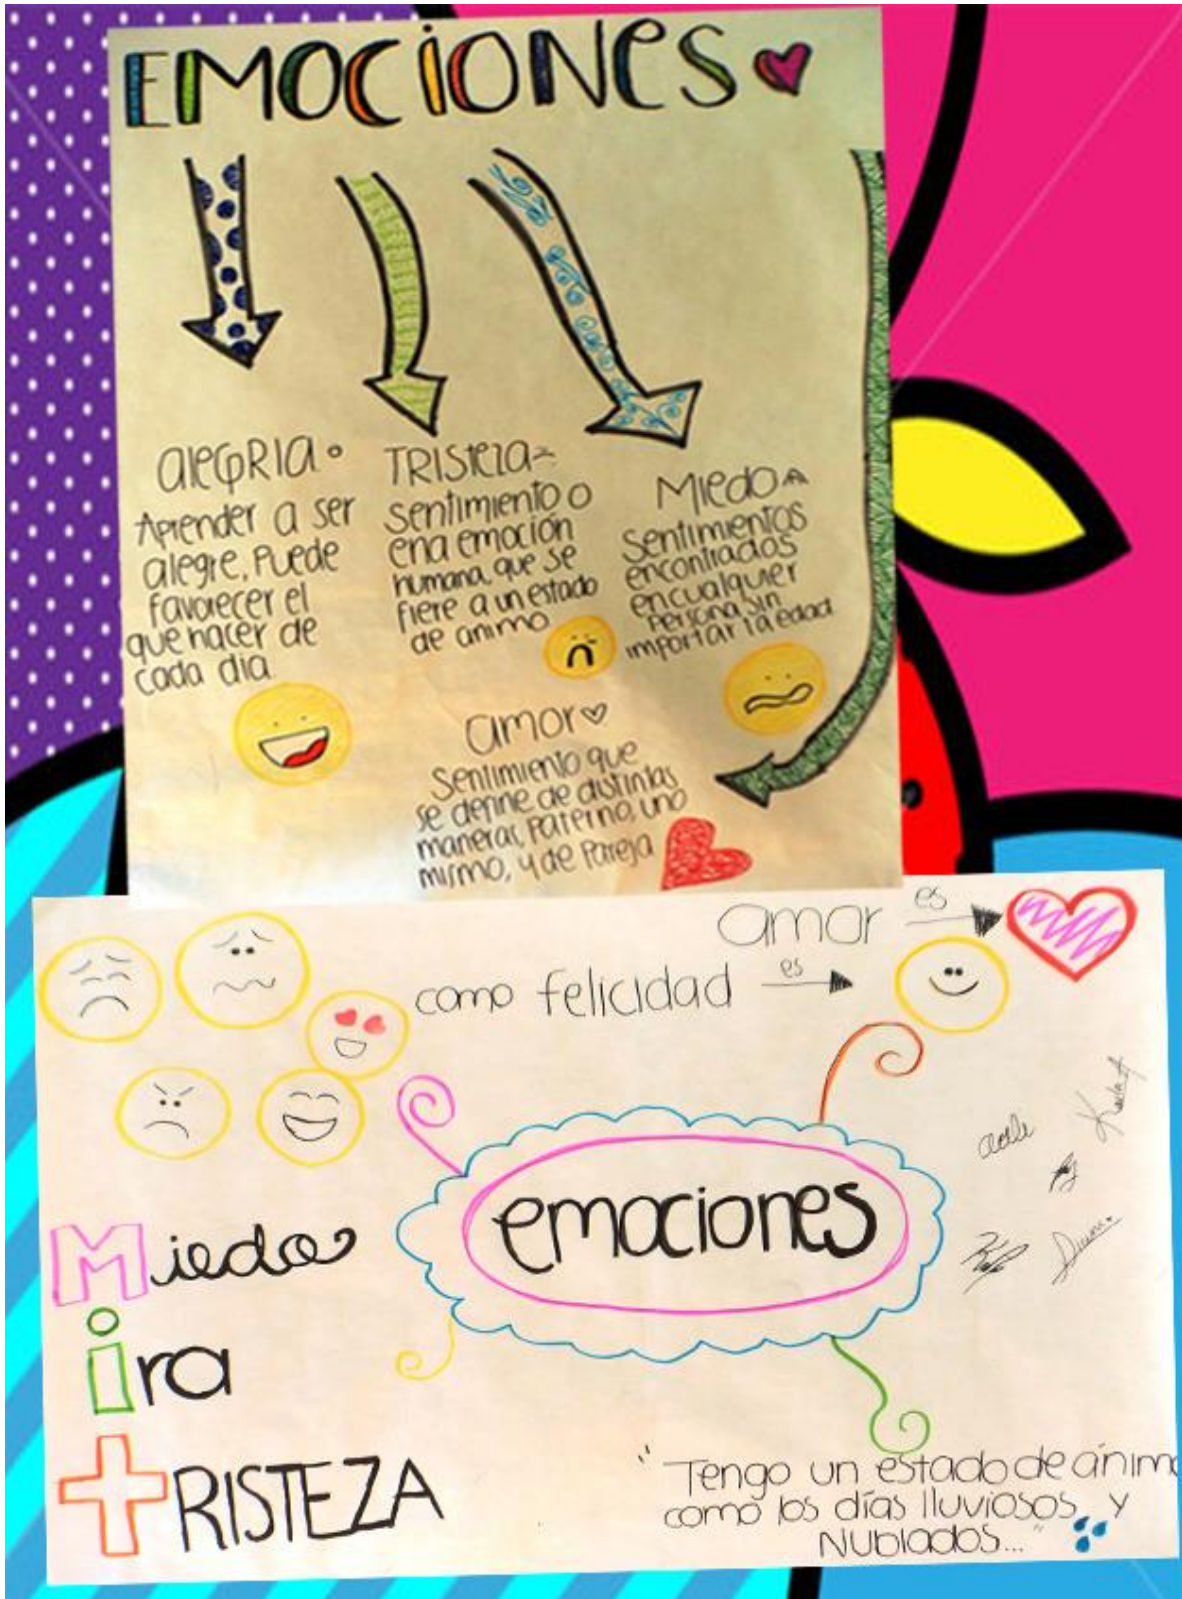 EMOCIONES
alegRIa
Aprender a ser
alegre, Puede
favorecer el
que hacer de
cada dia
TRISteza
sentimiento o
ena emoción
humana, que se
fiere a un estado
de animo
Miedo
Sentimientos
encontrados
encualquier
Persona sin
importar la edad
amor
Sentimiento que
se define de distintas
maneras, Paterno, uno
mismo, y de Pareja
amor es
como felicidad es
emociones
Miedo
ira
tRISTEZA
"Tengo un estado de ánimo
como los días lluviosos y
Nublados..."